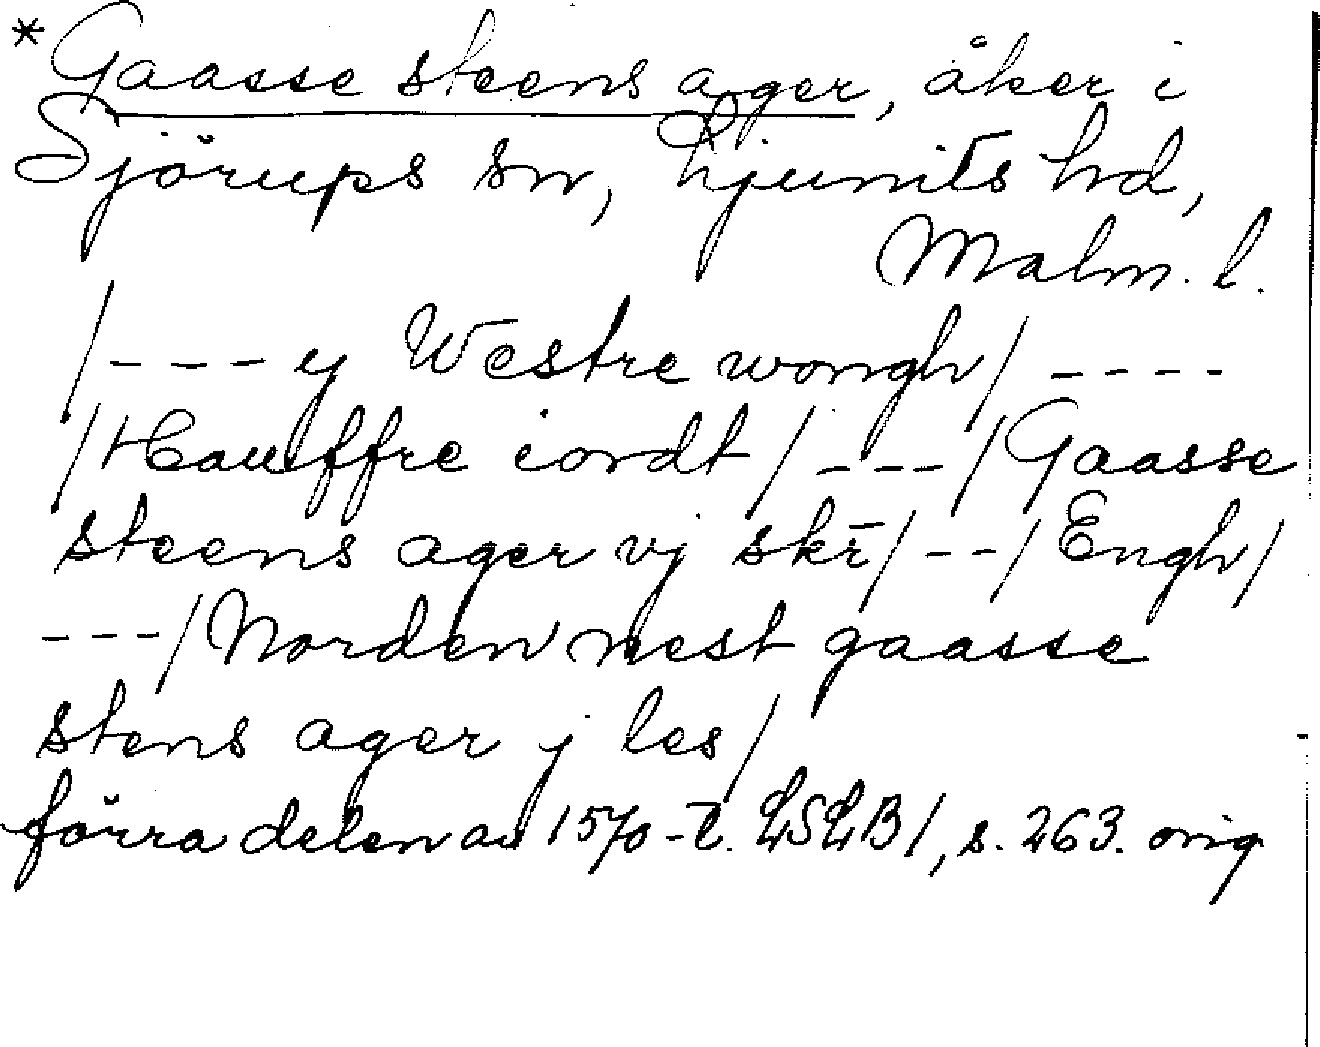 * Gaasse steens ager, åker i
Sjörups sn, Ljunits hd,
Malm. l.
/ - - - y Westre wongh / - - - -
/ Hauffre iordt / - - - / Gaasse
steens ager vj skr̄ / - - / Engh /
- - - / Norden nest gaasse
stens ager j les /
förra delen av 1570-t. LSLB 1, s. 263. orig